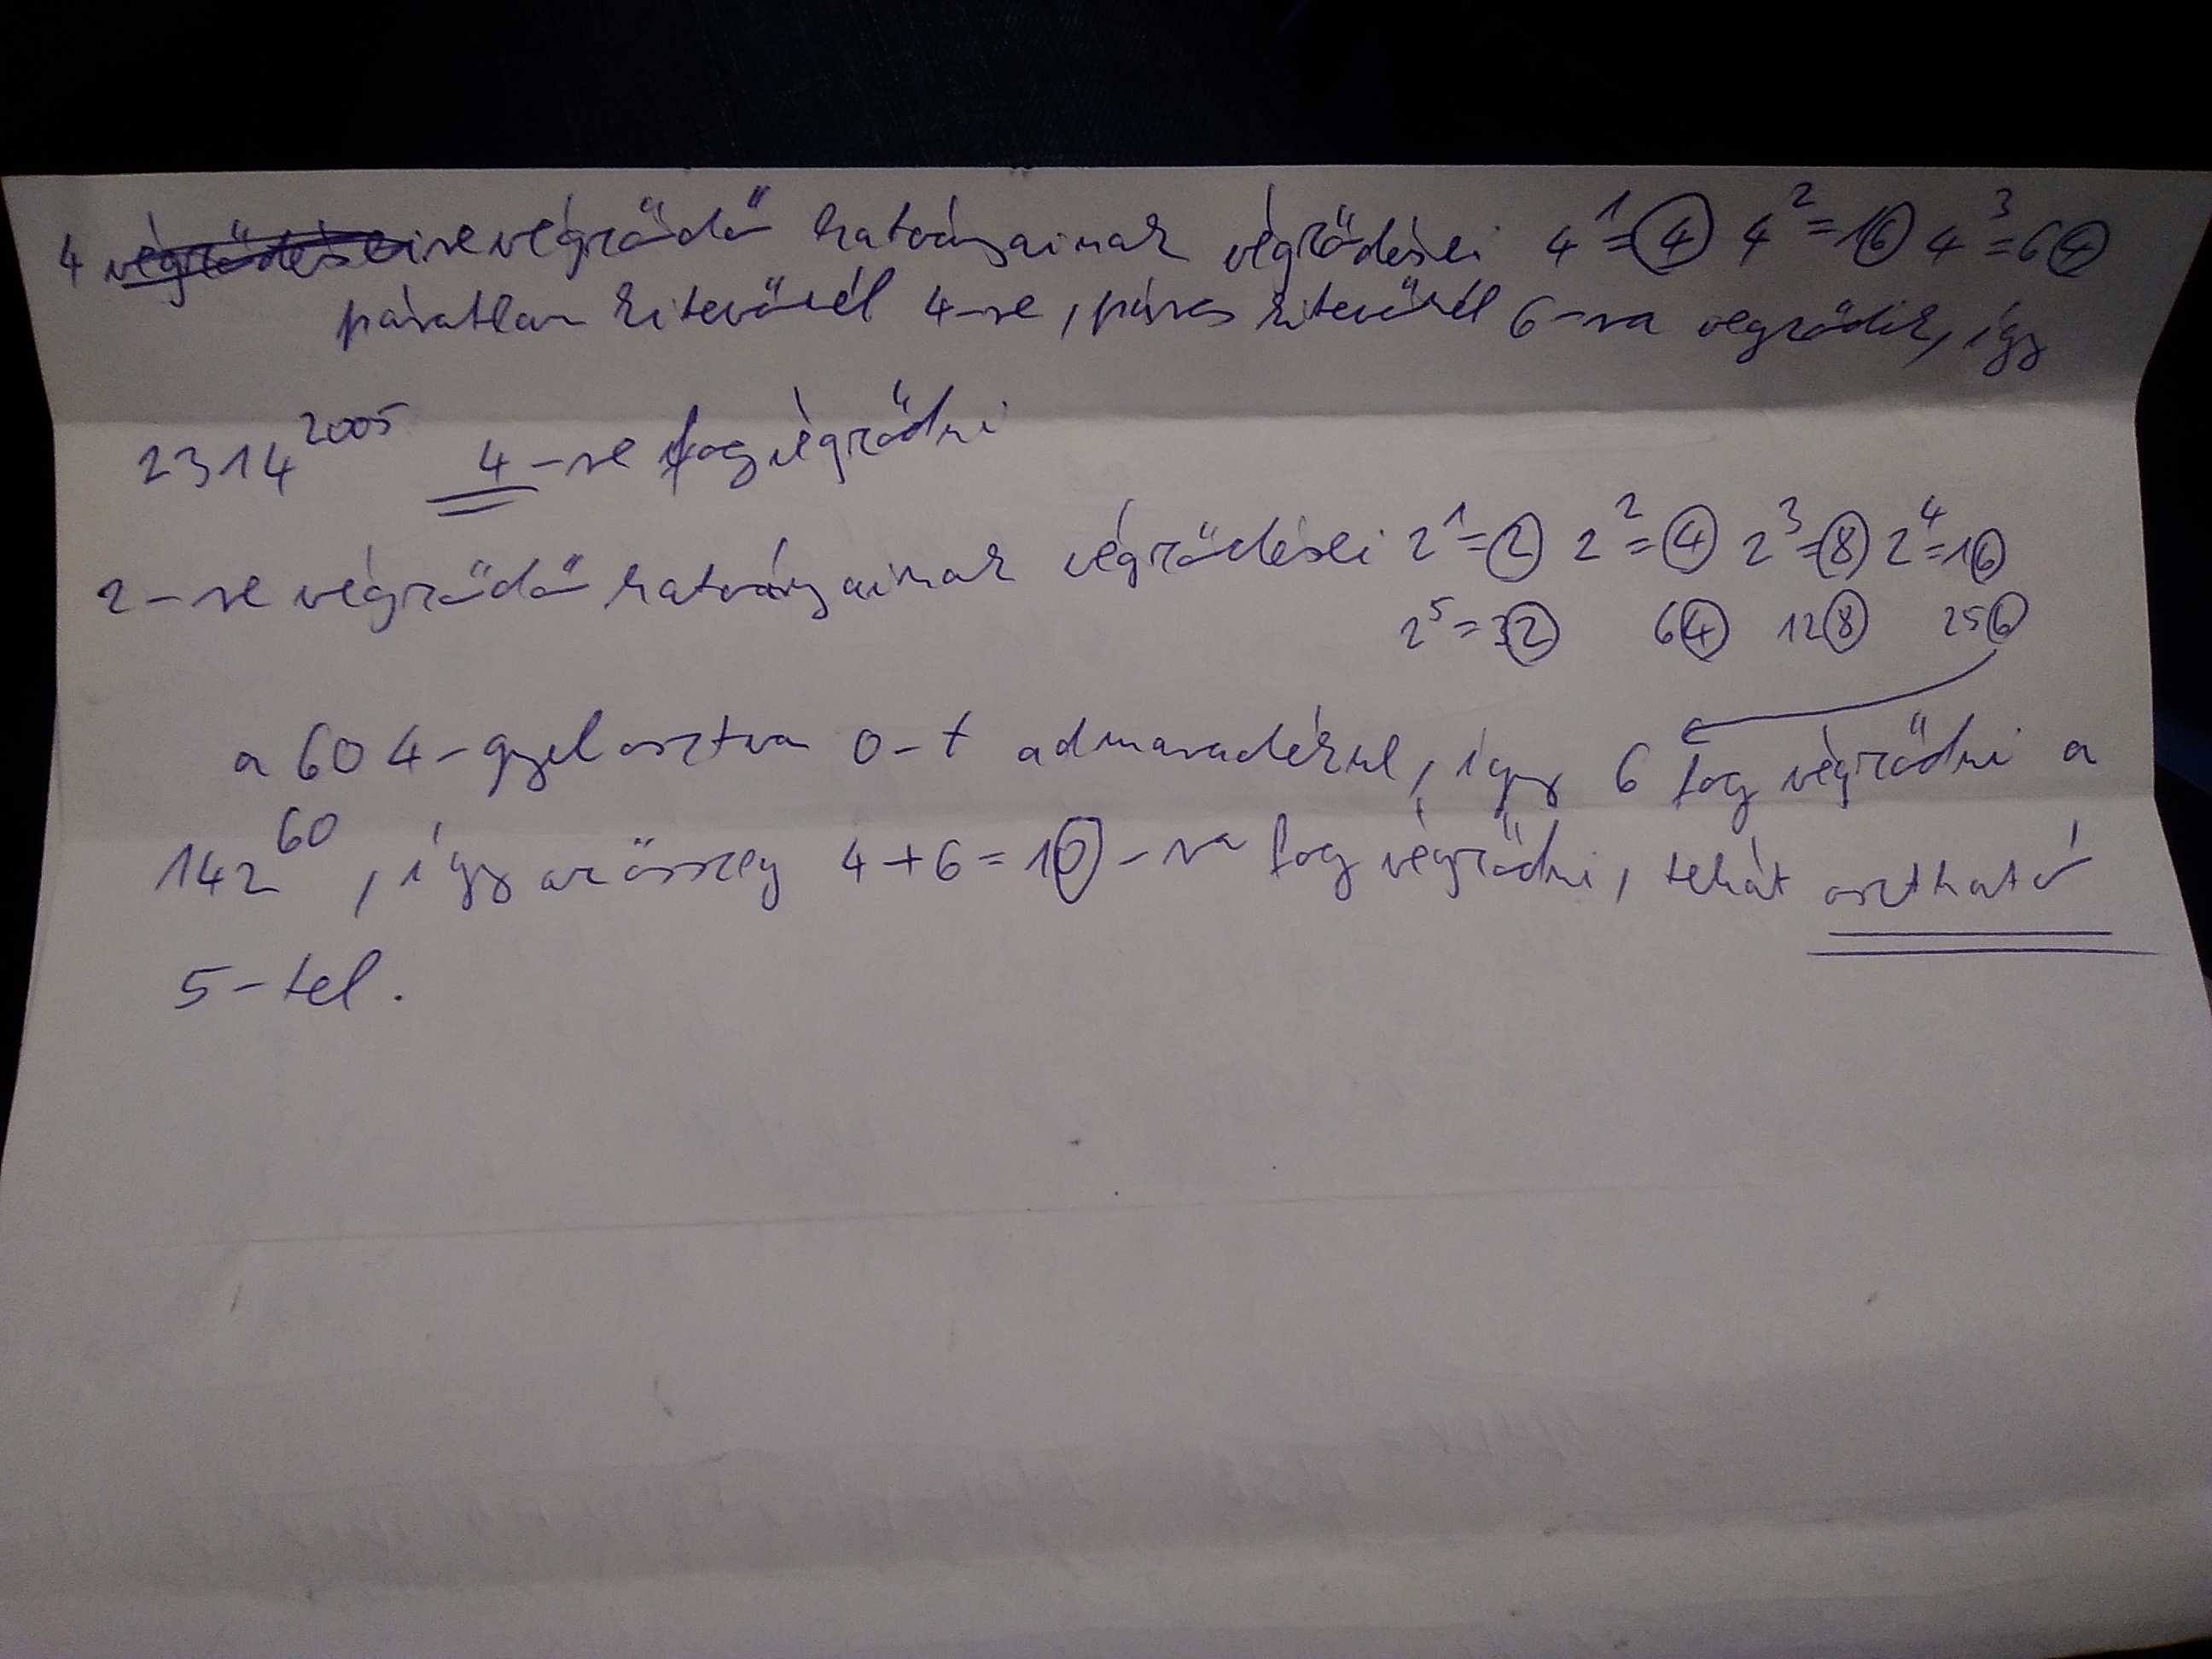 4 végződései re végződő hatványainak végződései 4¹=4 4²=16 4³=64
páratlan kitevőnél 4-re, páros kitevőnél 6-ra végződik, így
2314²⁰⁰⁵ 4-re fog végződni
2-re végződő hatványainak végződései 2¹=2 2²=4 2³=8 2⁴=16
2⁵=32 64 128 256
a 60 4-gyel osztva 0-t ad maradékul, így 6 fog végződni a
142⁶⁰, így az összeg 4+6=10-ra fog végződni, tehát osztható
5-tel.